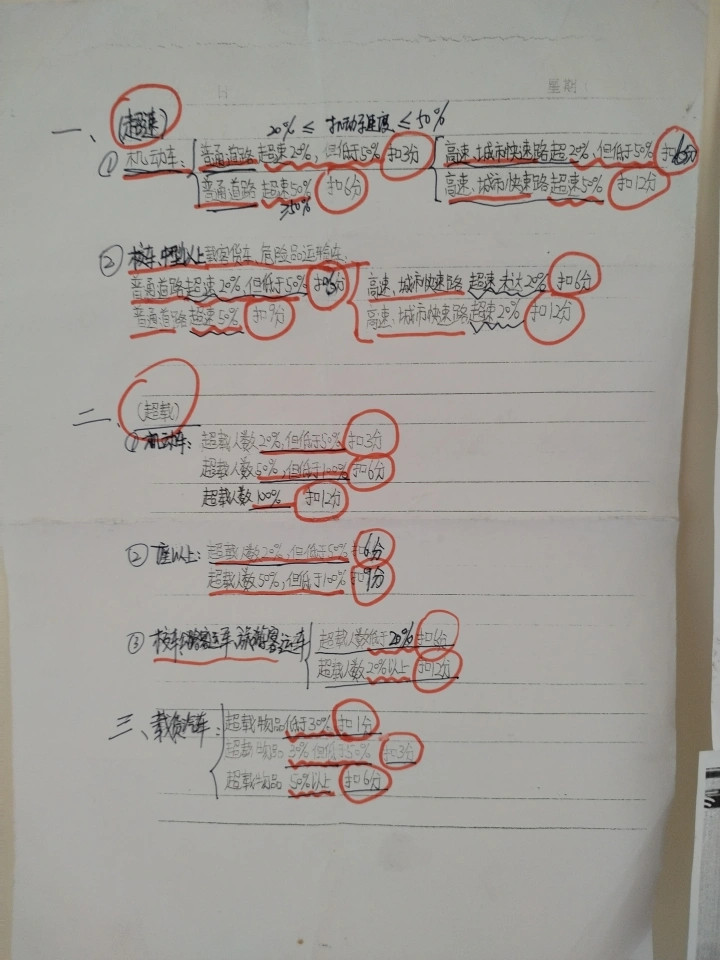 日 星期
一、(超速) 20% ≤ 机动车速度 ≤ 50%
①机动车: 普通道路 超速20%, 但低于50% 扣3分 高速、城市快速路超20%, 但低于50% 扣6分
普通道路 超速50% 扣6分 高速、城市快速路 超速50% 扣12分
≥50%
②校车、中型以上载客货车、危险品运输车:
普通道路超速20%, 但低于50% 扣6分 高速、城市快速路 超速未达20% 扣6分
普通道路 超速50% 扣9分 高速、城市快速路 超速20% 扣12分
二、(超载)
①机动车: 超载人数20%, 但低于50% 扣3分
超载人数50%, 但低于100% 扣6分
超载人数100% 扣12分
②座以上: 超载人数20%, 但低于50% 扣6分
超载人数50%, 但低于100% 扣9分
③校车、公路客运车、旅游客运车 超载人数低于20% 扣6分
超载人数20%以上 扣12分
三、载货汽车: 超载物品低于30% 扣1分
超载物品 30%但低于50% 扣3分
超载物品 50%以上 扣6分